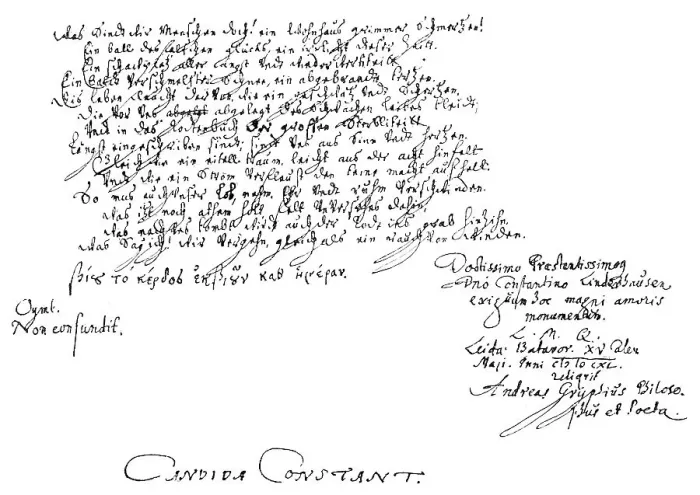 Was Sindt Wir Menschen doch! ein Wohnhaus grimmer Schmertzen!
Ein ball des falschen glücks, ein irlicht dieser Zeitt.
Ein schauplatz aller angst Undt Widerwertikeit
Ein baldt Verschmeltzter Schnee, ein abgebrandte kertzen.
Dis leben fleucht davon, wie ein geschwätz undt Schertzen.
Die Vor Uns abgelegt des Schwachen leibes kleidt;
Undt in das todtenbuch der grossen Sterblikeit
Längst eingeschriben sindt; sindt Uns aus Sinn undt hertzen.
Gleich wie ein eitell traum, leicht aus der acht hinfält
Undt wie ein Strom Verfleust den keine macht auffhelt.
So mus auch Unser Lob, nahm, Ehr Undt ruhm Verschwinden.
Was itzt noch athem holt fält Unversehns dahin;
Was nach Uns kombt Wirdt auch der Todt ins grab hinzihn,
Was Sag ich! Wir Vergehn, gleich als ein rauch Von Winden.
βίου τὸ κέρδος ἐκβιοῦν καθ ἡμέραν.
Non confundit.
Doctissimo Præstantissimoq
Dno Constantino
exiguum hoc magni amoris
monumentum.
L. M. Q.
Leidæ Batavor. XV Calen
Maji. Anni CIƆ IƆ CXL.
reliquit
Andreas Gryphius Philoso-
phus et Poeta.
CANDIDA CONSTANT.